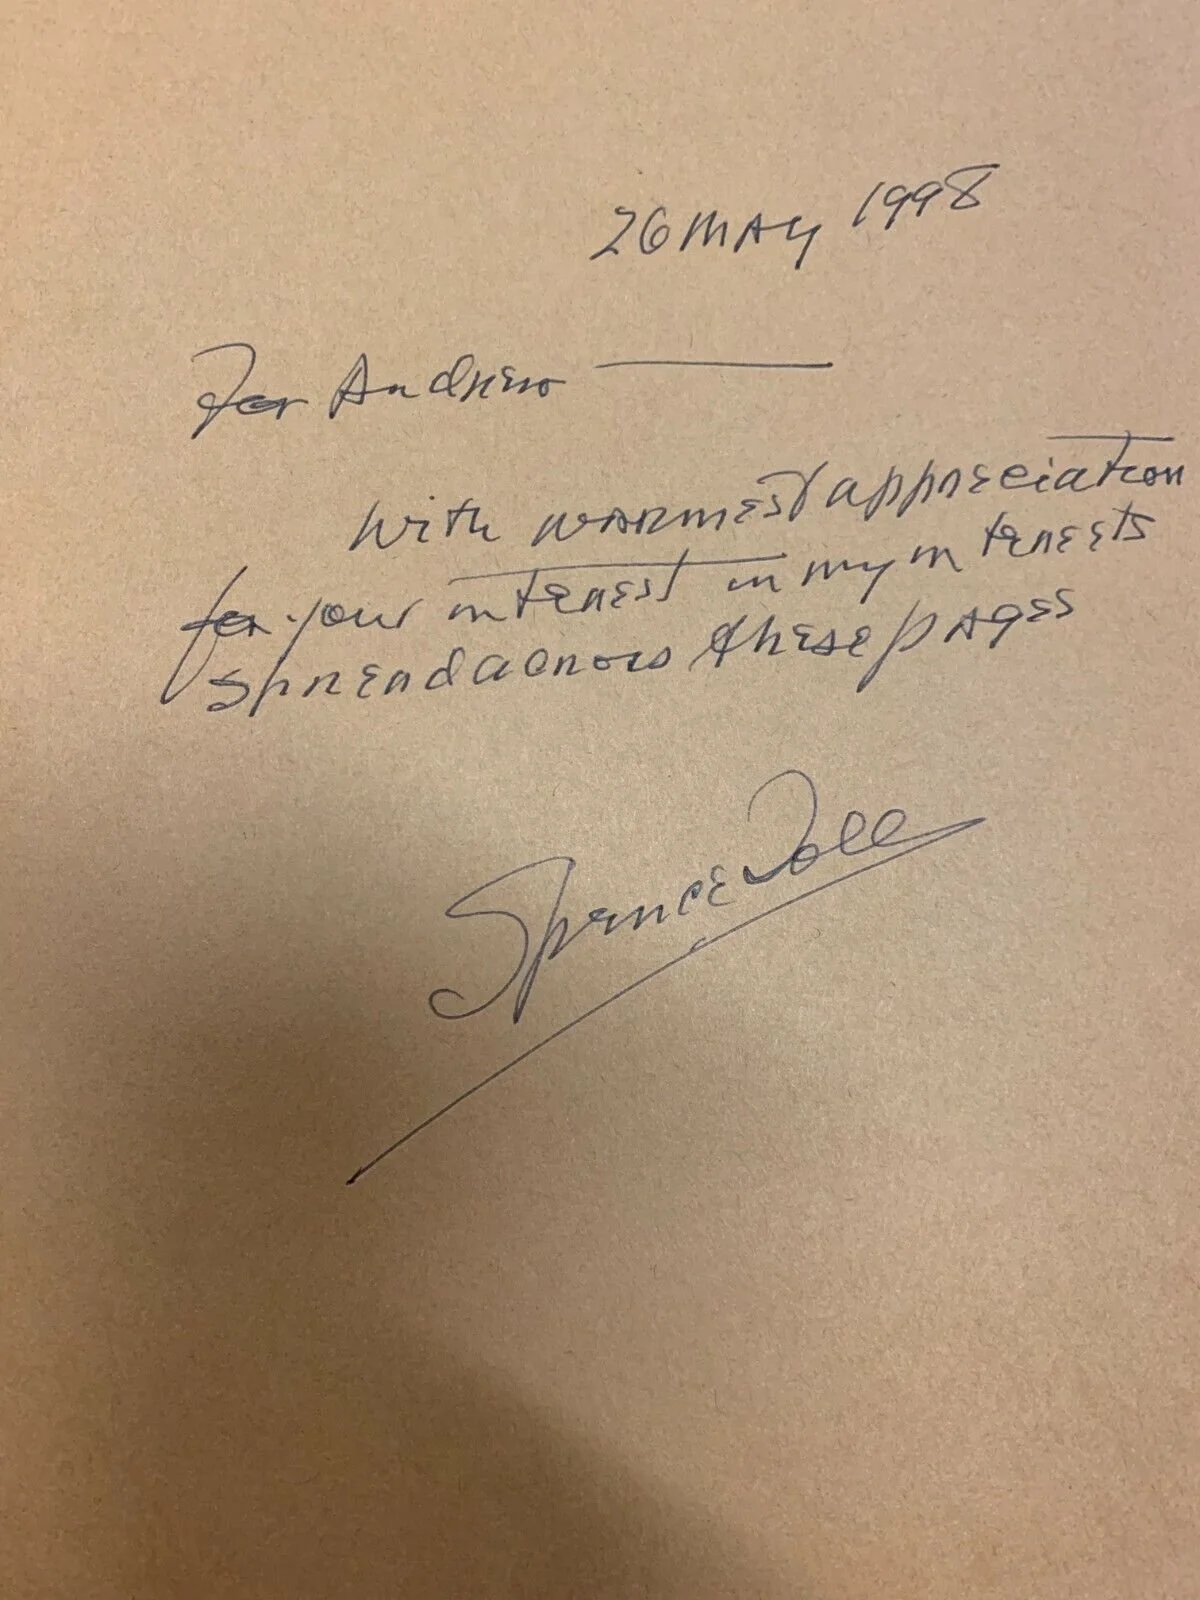 26 MAY 1998
For Andrew —
With warmest appreciation
for your interest in my interests
spread across these pages
Spence Toll